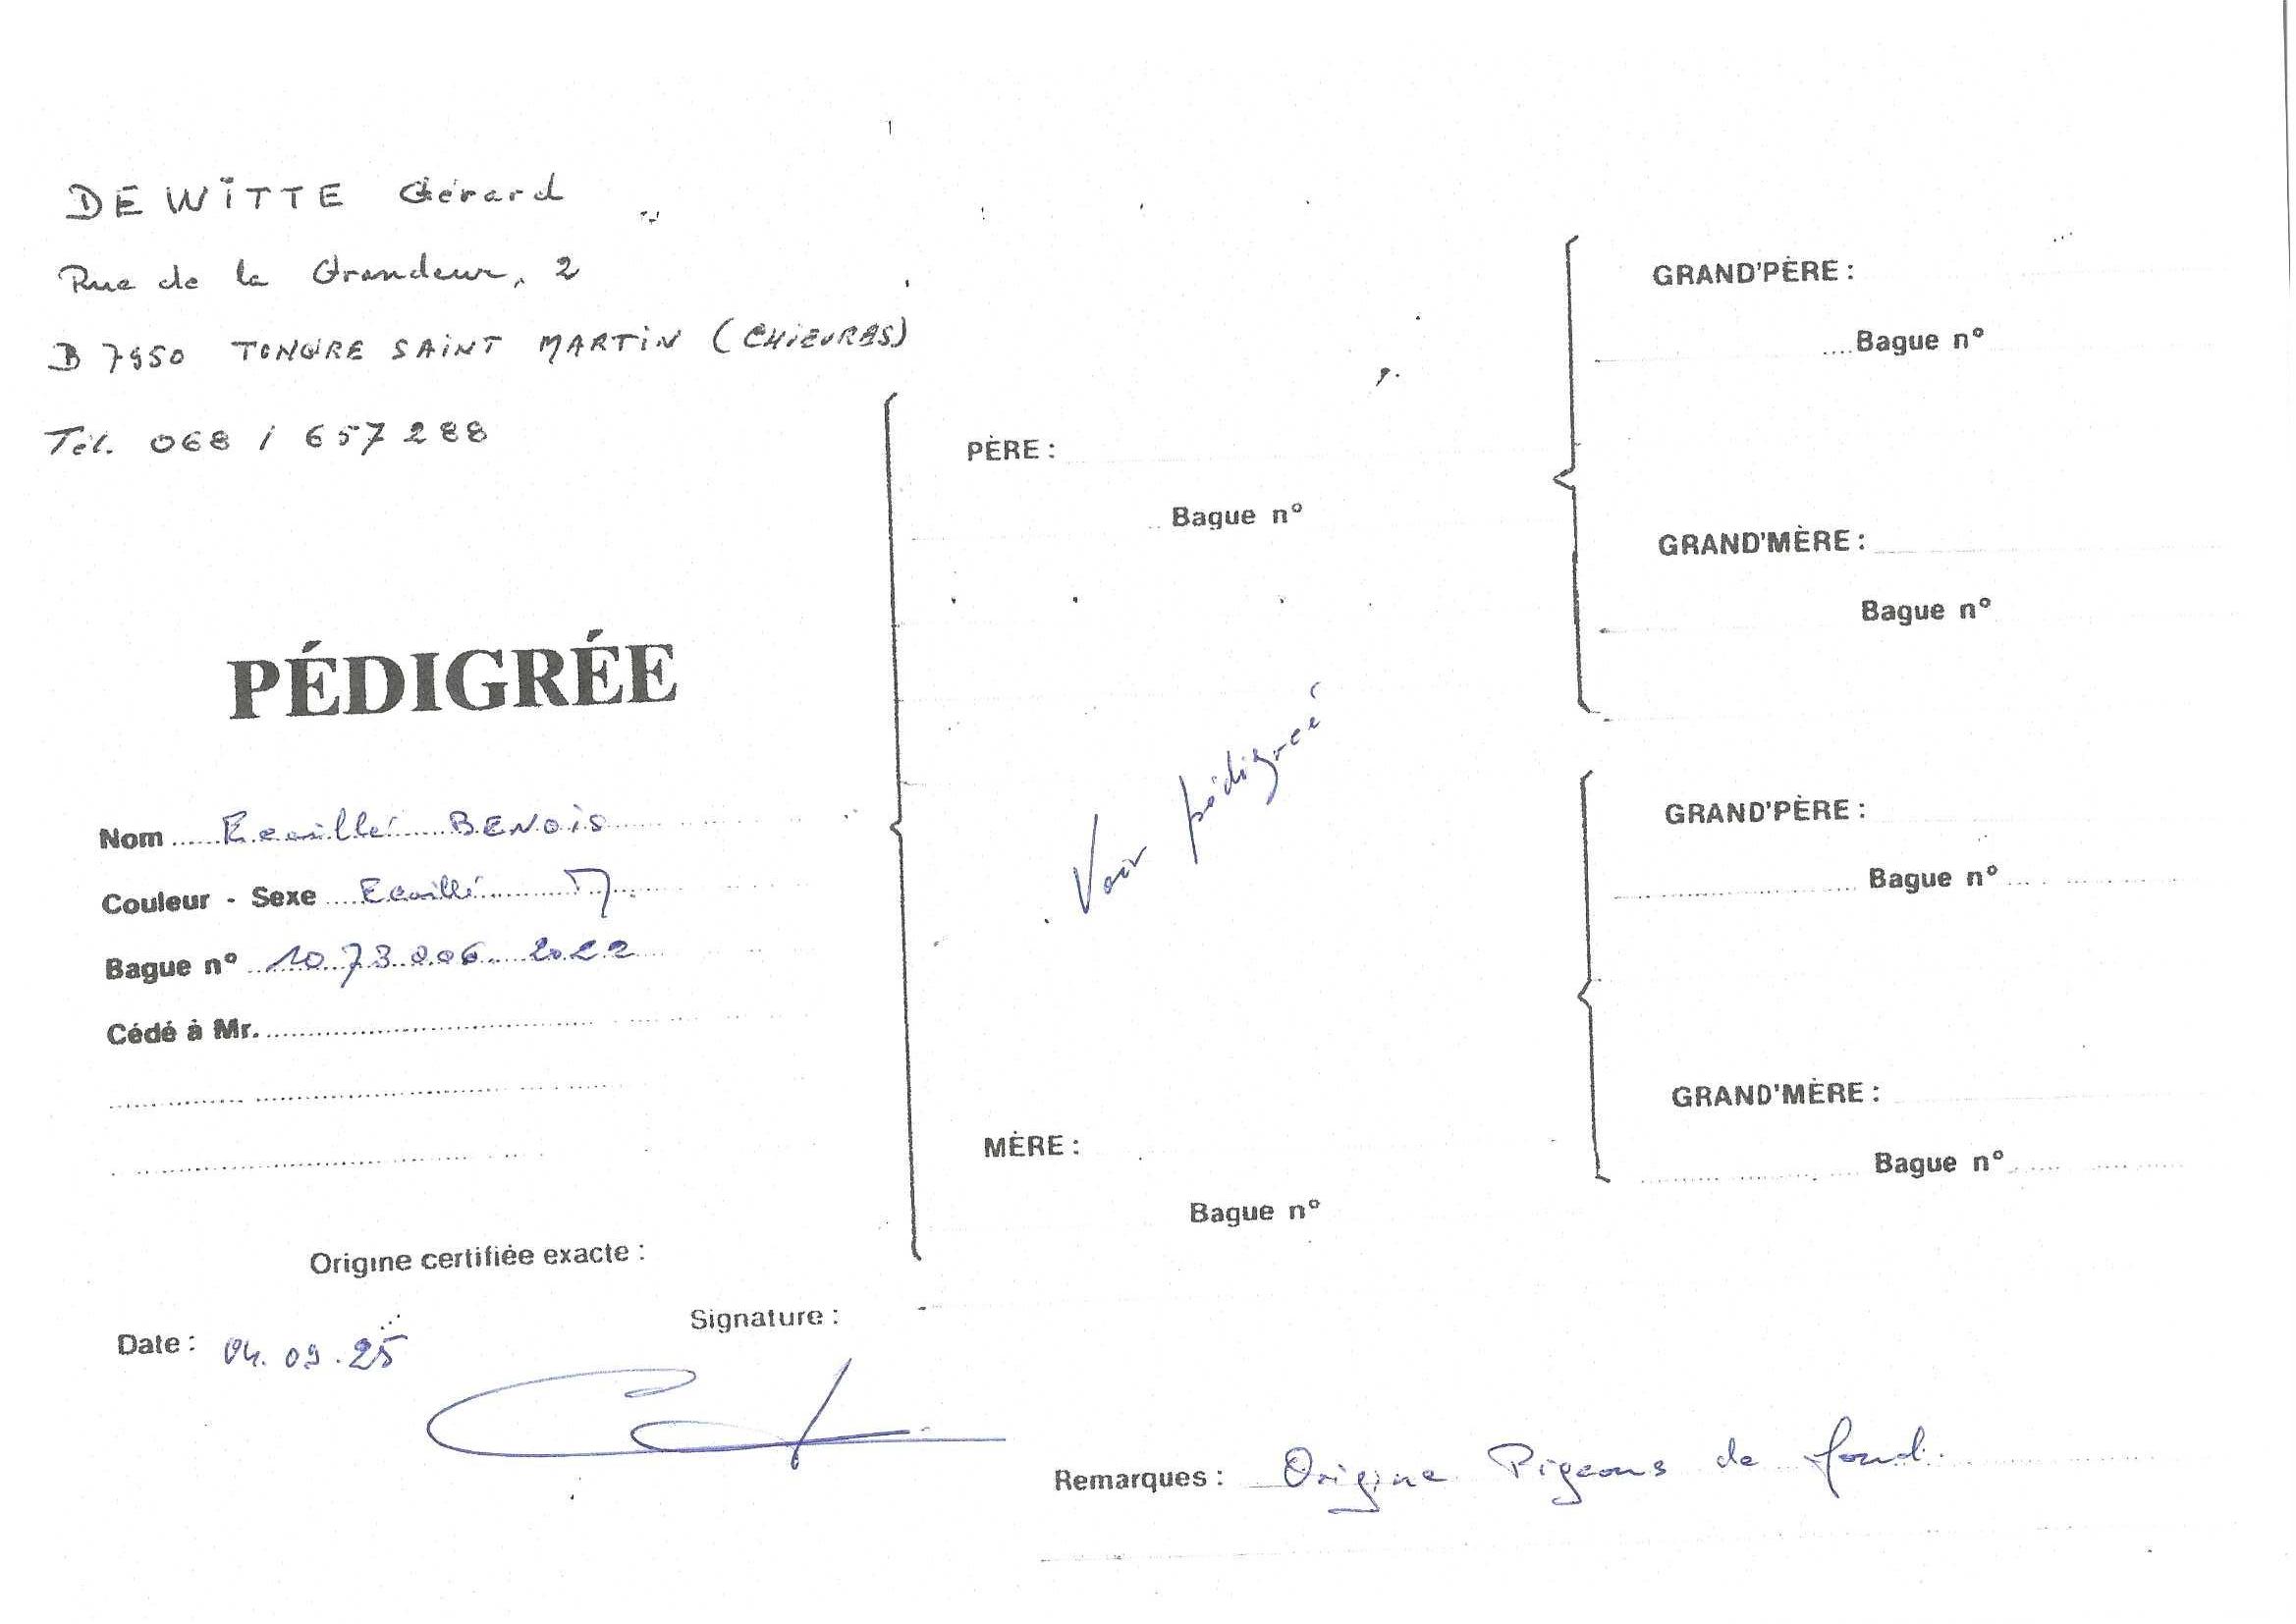 DE WITTE Gérard
Rue de la Grandeur, 2
B 7950 TONGRE SAINT MARTIN (CHIEVRES)
Tél. 068 / 657288
PÉDIGRÉE
Nom Ecaillé BENOIS
Couleur - Sexe Ecaillé M.
Bague n° 1073006. 2022
Cédé à Mr.
Origine certifiée exacte :
Date : 04.09.25
Signature :
PÈRE :
Bague n°
Voir pédigréé
MÈRE :
Bague n°
GRAND'PÈRE :
Bague n°
GRAND'MÈRE :
Bague n°
GRAND'PÈRE :
Bague n°
GRAND'MÈRE :
Bague n°
Remarques : Origine Pigeons de fond.